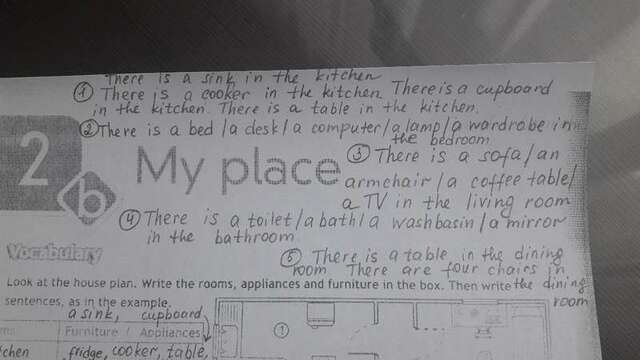 There is a sink in the kitchen
① There is a cooker in the kitchen There is a cupboard
in the kitchen. There is a table in the kitchen.
② There is a bed / a desk / a computer / a lamp / a wardrobe in
the bedroom
2
b
My place
③ There is a sofa / an
armchair / a coffee table /
a TV in the living room
④ There is a toilet / a bath / a washbasin / a mirror
in the bathroom
Vocabulary
⑤ There is a table in the dining
room There are four chairs in
the dining
room
Look at the house plan. Write the rooms, appliances and furniture in the box. Then write
sentences, as in the example.
a sink, cupboard
Furniture / Appliances
①
fridge, cooker, table,